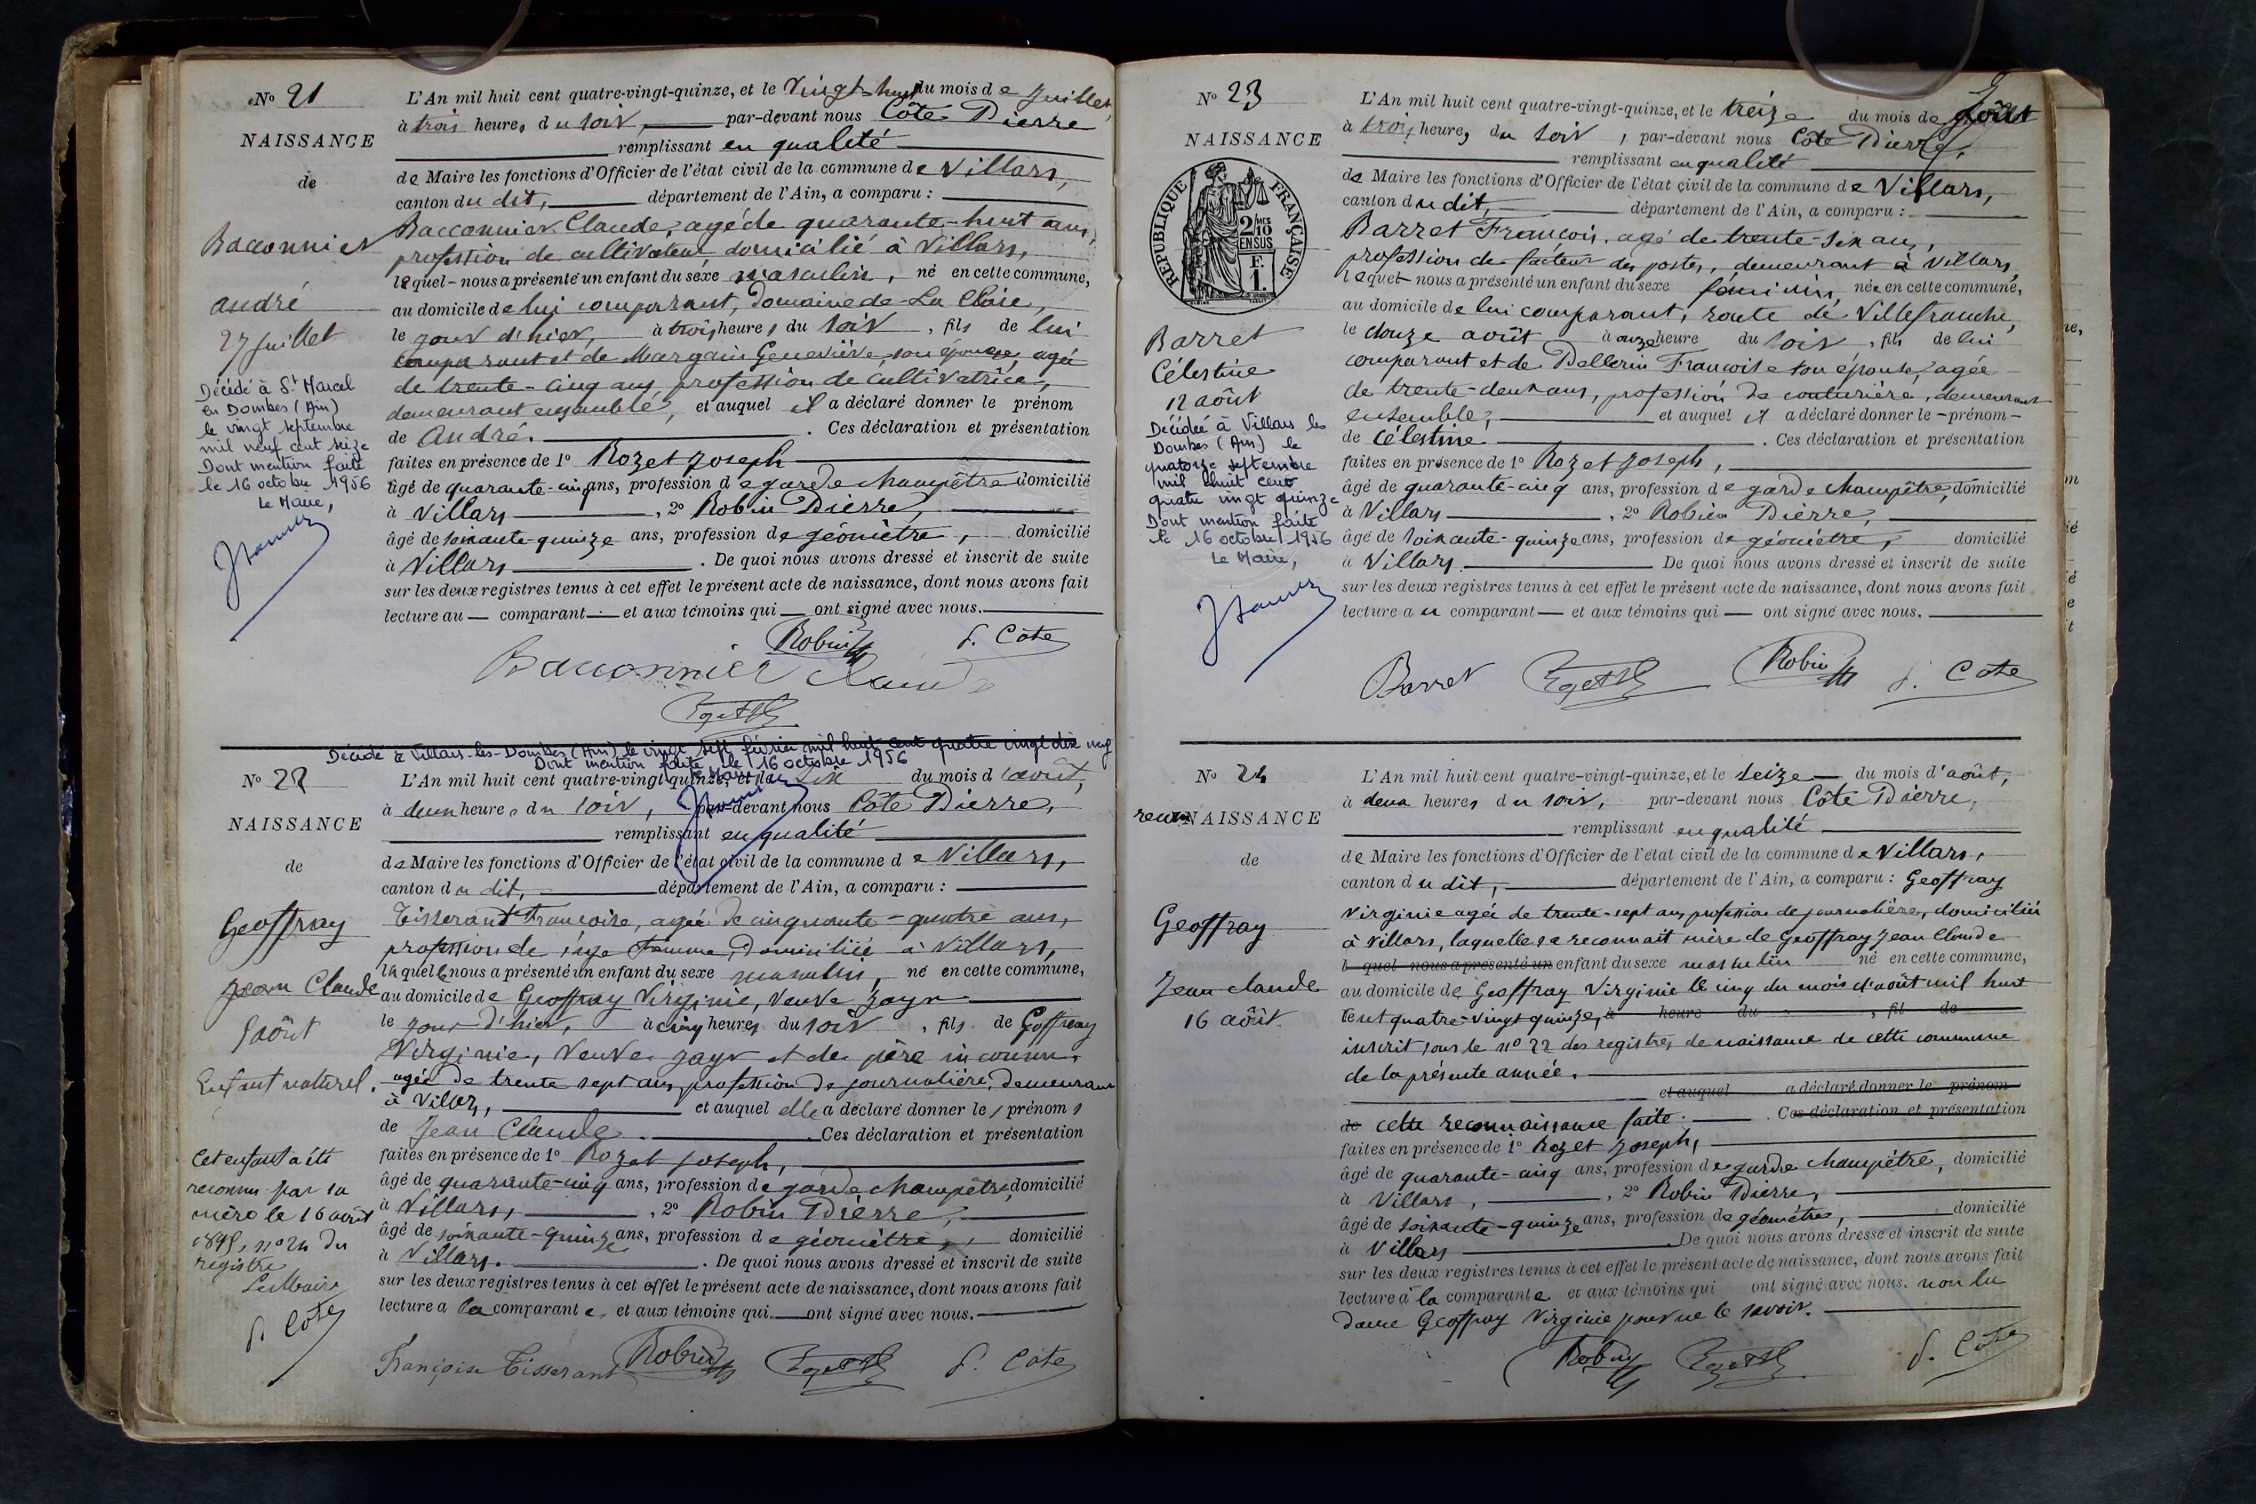 No 21
NAISSANCE
de
Bacconnier
André
27 Juillet
Décédé à St Marcel
en Dombes (Ain)
le vingt septembre
mil neuf cent seize
Dont mention faite
le 16 octobre 1956
Le Maire,
L'An mil huit cent quatre-vingt-quinze, et le vingt-huit du mois de Juillet,
à trois heures du soir, par-devant nous Côte Pierre
remplissant en qualité
de Maire les fonctions d'Officier de l'état civil de la commune de Villars,
canton du dit, département de l'Ain, a comparu :
Bacconnier Claude, agé de quarante-huit ans,
profession de cultivateur domicilié à Villars,
lequel nous a présenté un enfant du sexe masculin, né en cette commune,
au domicile de lui comparant, Domaine de La Cloire,
le jour d'hier, à trois heures du soir, fils de lui
comparant et de Margain Geneviève, son épouse, agée
de trente-cinq ans, profession de cultivatrice,
demeurant ensemble, et auquel il a déclaré donner le prénom
de André. Ces déclaration et présentation
faites en présence de 1o Rozet Joseph
âgé de quarante-cinq ans, profession de garde champêtre domicilié
à Villars, 2o Robin Pierre,
âgé de soixante-quinze ans, profession de géomètre, domicilié
à Villars. De quoi nous avons dressé et inscrit de suite
sur les deux registres tenus à cet effet le présent acte de naissance, dont nous avons fait
lecture au comparant et aux témoins qui ont signé avec nous.
Robin P. Côte
Bacconnier Claude
Rozet
Décédé à Villars-les-Dombes (Ain) le vingt sept février mil huit cent quatre vingt dix neuf
Dont mention faite le 16 octobre 1956
Le Maire
No 22
NAISSANCE
de
Geoffray
Jean Claude
5 août
Enfant naturel.
Cet enfant a été
reconnu par sa
mère le 16 août
1895, no 24 du
registre
Le Maire
P. Côte
L'An mil huit cent quatre-vingt-quinze, et le six du mois d'août,
à deux heures du soir, par-devant nous Côte Pierre,
remplissant en qualité
de Maire les fonctions d'Officier de l'état civil de la commune de Villars,
canton du dit, département de l'Ain, a comparu :
Tisserant Françoise, agée de cinquante-quatre ans,
profession de sage femme, domiciliée à Villars,
laquelle nous a présenté un enfant du sexe masculin, né en cette commune,
au domicile de Geoffray Virginie, veuve Jayr
le jour d'hier, à cinq heures du soir, fils de Goffray
Virginie, veuve Jayr et de père inconnu.
agée de trente sept ans, profession de journalière, demeurant
à Villars, et auquel elle a déclaré donner les prénoms
de Jean Claude. Ces déclaration et présentation
faites en présence de 1o Rozet Joseph,
âgé de quarante-cinq ans, profession de garde champêtre, domicilié
à Villars, 2o Robin Pierre,
âgé de soixante-quinze ans, profession de géomètre, domicilié
à Villars. De quoi nous avons dressé et inscrit de suite
sur les deux registres tenus à cet effet le présent acte de naissance, dont nous avons fait
lecture a la comparante, et aux témoins qui ont signé avec nous.
Françoise Tisserant Robin Rozet P. Côte
No 23
NAISSANCE
RÉPUBLIQUE FRANÇAISE
2/10 MES
EN SUS
F.
1.
Barret
Célestine
12 août
Décédée à Villars les
Dombes (Ain) le
quatorze septembre
mil huit cent
quatre vingt quinze
Dont mention faite
le 16 octobre 1956
Le Maire,
L'An mil huit cent quatre-vingt-quinze, et le treize du mois de Août
à trois heures du soir, par-devant nous Côte Pierre,
remplissant en qualité
de Maire les fonctions d'Officier de l'état civil de la commune de Villars,
canton du dit, département de l'Ain, a comparu :
Barret François, agé de trente-six ans,
profession de facteur des postes, demeurant à Villars,
lequel nous a présenté un enfant du sexe féminin, née en cette commune,
au domicile de lui comparant, route de Villefranche,
le douze août à onze heure du soir, fils de lui
comparant et de Pellerin Françoise son épouse, agée
de trente-deux ans, profession de couturière, demeurant
ensemble, et auquel il a déclaré donner le prénom
de Célestine. Ces déclaration et présentation
faites en présence de 1o Rozet Joseph,
âgé de quarante-cinq ans, profession de garde champêtre, domicilié
à Villars, 2o Robin Pierre,
âgé de soixante-quinze ans, profession de géomètre, domicilié
à Villars. De quoi nous avons dressé et inscrit de suite
sur les deux registres tenus à cet effet le présent acte de naissance, dont nous avons fait
lecture au comparant et aux témoins qui ont signé avec nous.
Barret Rozet Robin P. Côte
No 24
reconNAISSANCE
de
Geoffray
Jean Claude
16 août.
L'An mil huit cent quatre-vingt-quinze, et le seize du mois d'août,
à deux heures du soir, par-devant nous Côte Pierre,
remplissant en qualité
de Maire les fonctions d'Officier de l'état civil de la commune de Villars,
canton du dit, département de l'Ain, a comparu : Geoffray
Virginie agée de trente-sept ans profession de journalière, domiciliée
à Villars, laquelle se reconnait mère de Geoffray Jean Claude
lequel nous a présenté un enfant du sexe masculin né en cette commune,
au domicile de Geoffray Virginie le cinq du mois d'août mil huit
cent quatre-vingt quinze, à heure du , fil de
inscrit sous le no 22 des registres de naissance de cette commune
de la présente année.
et auquel a déclaré donner le prénom
de cette reconnaissance faite. Ces déclaration et présentation
faites en présence de 1o Rozet Joseph,
âgé de quarante-cinq ans, profession de garde champêtre, domicilié
à Villars, 2o Robin Pierre,
âgé de soixante-quinze ans, profession de géomètre, domicilié
à Villars De quoi nous avons dressé et inscrit de suite
sur les deux registres tenus à cet effet le présent acte de naissance, dont nous avons fait
lecture à la comparante et aux témoins qui ont signé avec nous. non la
dame Geoffray Virginie pour ne le savoir.
Robin Rozet P. Côte